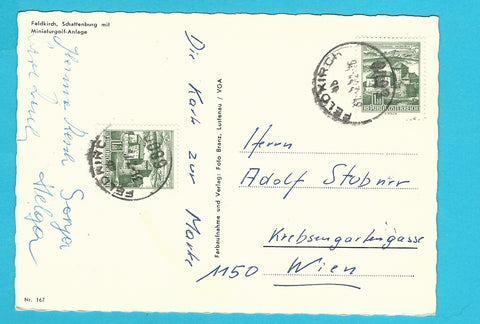 Feldkirch, Schattenburg mit
Miniaturgolf-Anlage
Sonja
Helga
Die Karte zur Marke
Farbaufnahme und Verlag: Foto Branz, Lustenau / VGA
Nr. 167
FELDKIRCH
REPUBLIK ÖSTERREICH
FELDKIRCH
Herrn
Adolf Stubner
Krebsengartengasse
1150 Wien